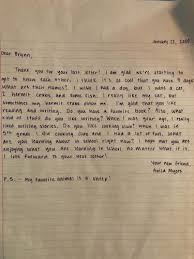 January 23, 2020
Dear Bryenn,
Thank you for your last letter! I am glad we're starting to
get to know each other. I think it's so cool that you have 3 dogs!
What are their names? I wish I had a dog, but I want a cat,
I like reading my cat, but
sometimes my hermit crabs chase me. I'm glad that you like
reading and writing. Do you have a favorite book? Also what
kind of stuff do you like writing? When I was your age, I really
liked writing stories. Do you like cooking club? When I was in
5th grade I did cooking club and I had a lot of fun. What
are you learning about in school right now? I hope that you are
enjoying what you are learning in school no matter what it is.
I look forward to your next letter!
Your new friend,
Rogers
P.S. - My favorite animal is a